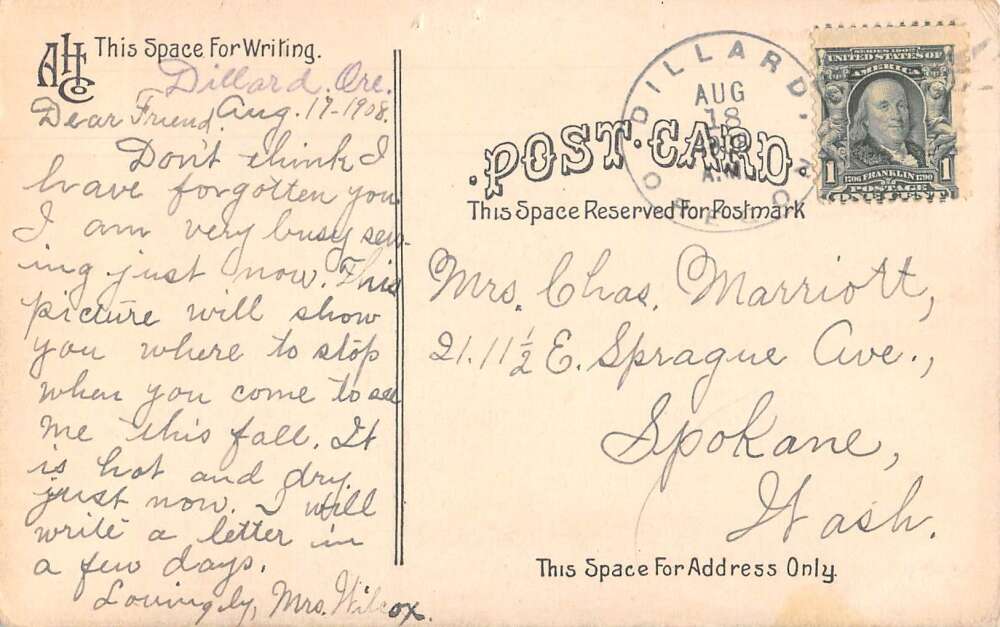 AHCo
This Space For Writing.
Dillard, Ore.
Aug. 17-1908.
Dear Friend,
Don't think I
have forgotten you
I am very busy sew-
ing just now. This
picture will show
you where to stop
when you come to see
me this fall. It
is hot and dry
just now. I will
write a letter in
a few days.
Lovingly, Mrs. Wilcox.
DILLARD,
OREGON
AUG
18
A.M.
POST CARD.
This Space Reserved For Postmark
SERIES 1902
UNITED STATES OF
AMERICA
1 1
1706 FRANKLIN 1790
POSTAGE
ONE CENT
Mrs. Chas. Marriott,
21.11½ E. Sprague Ave.,
Spokane,
Wash.
This Space For Address Only.